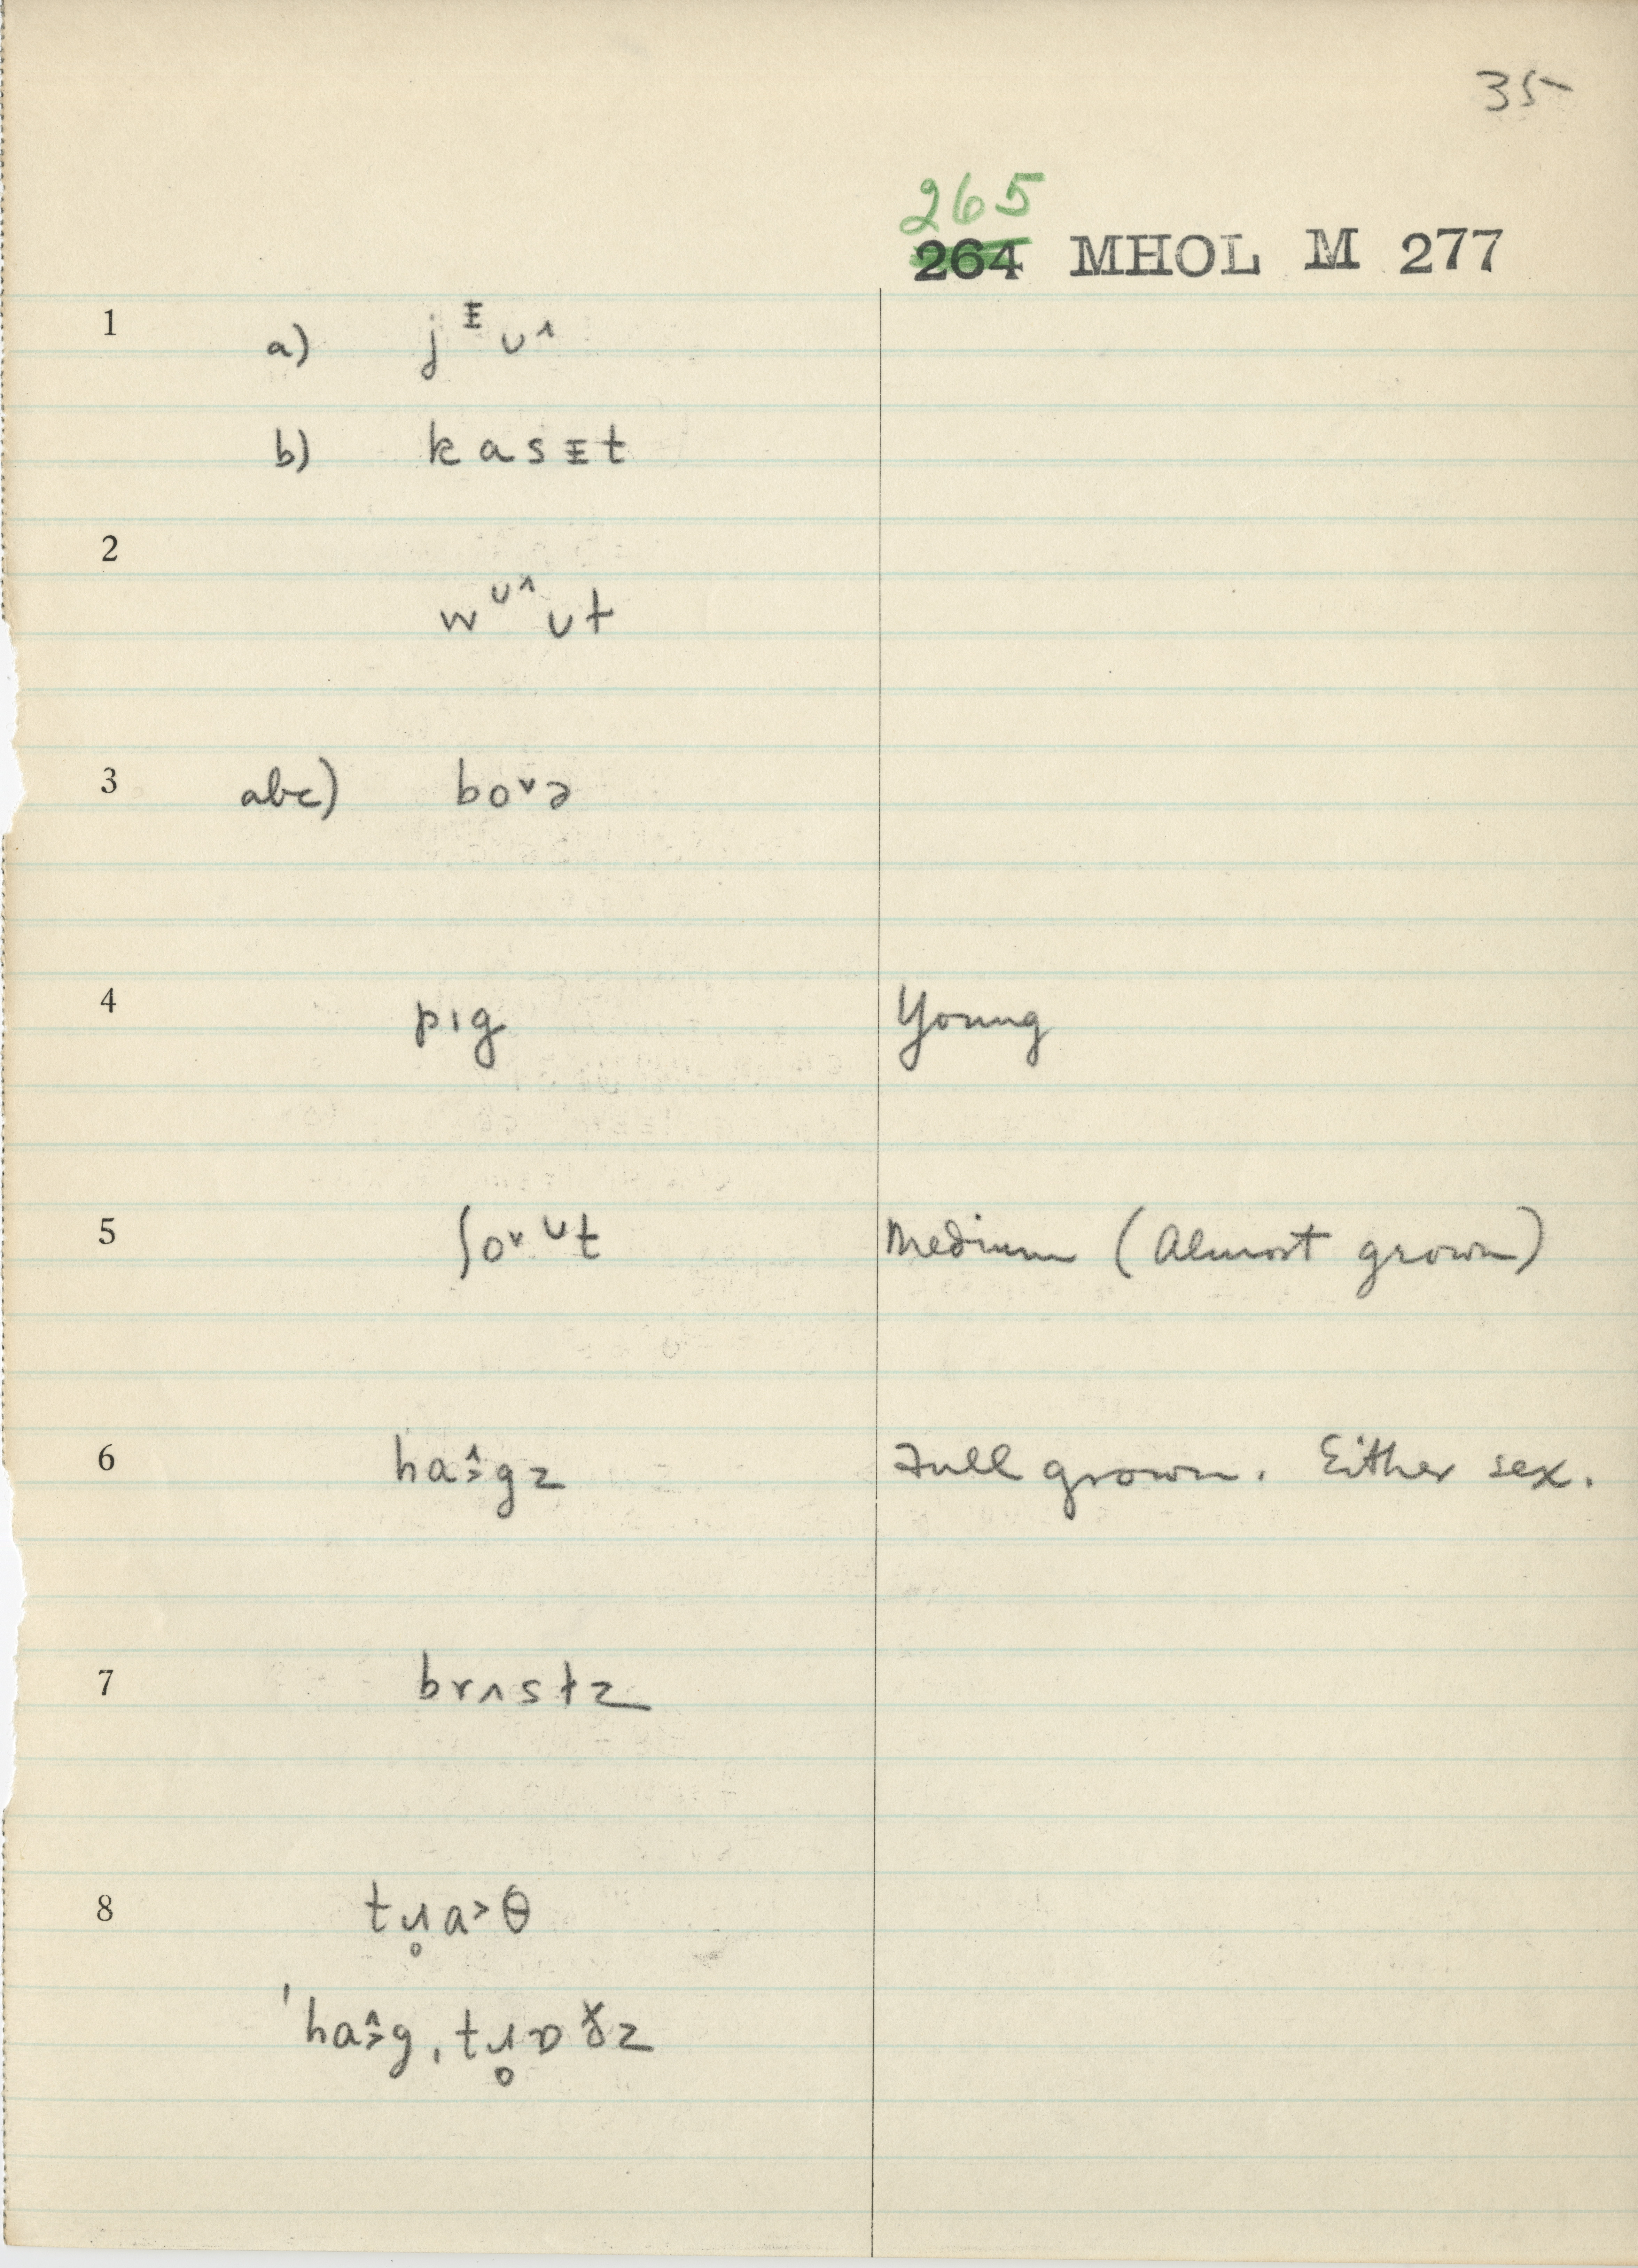 35
265
264 MHOL M 277
1 a) jᵻʊ˄
b) kasᵻt
2
wᶷ˄ʊt
3 abc) bo˅ə
4 pɪg Young
5 ʃo˅ᶷt Medium (Almost grown)
6 ha˄˃gz Full grown. Either sex.
7 brʌstz
8 tɹ̥a˃θ
ˈha˄˃gˌtɹ̥ɒɣz